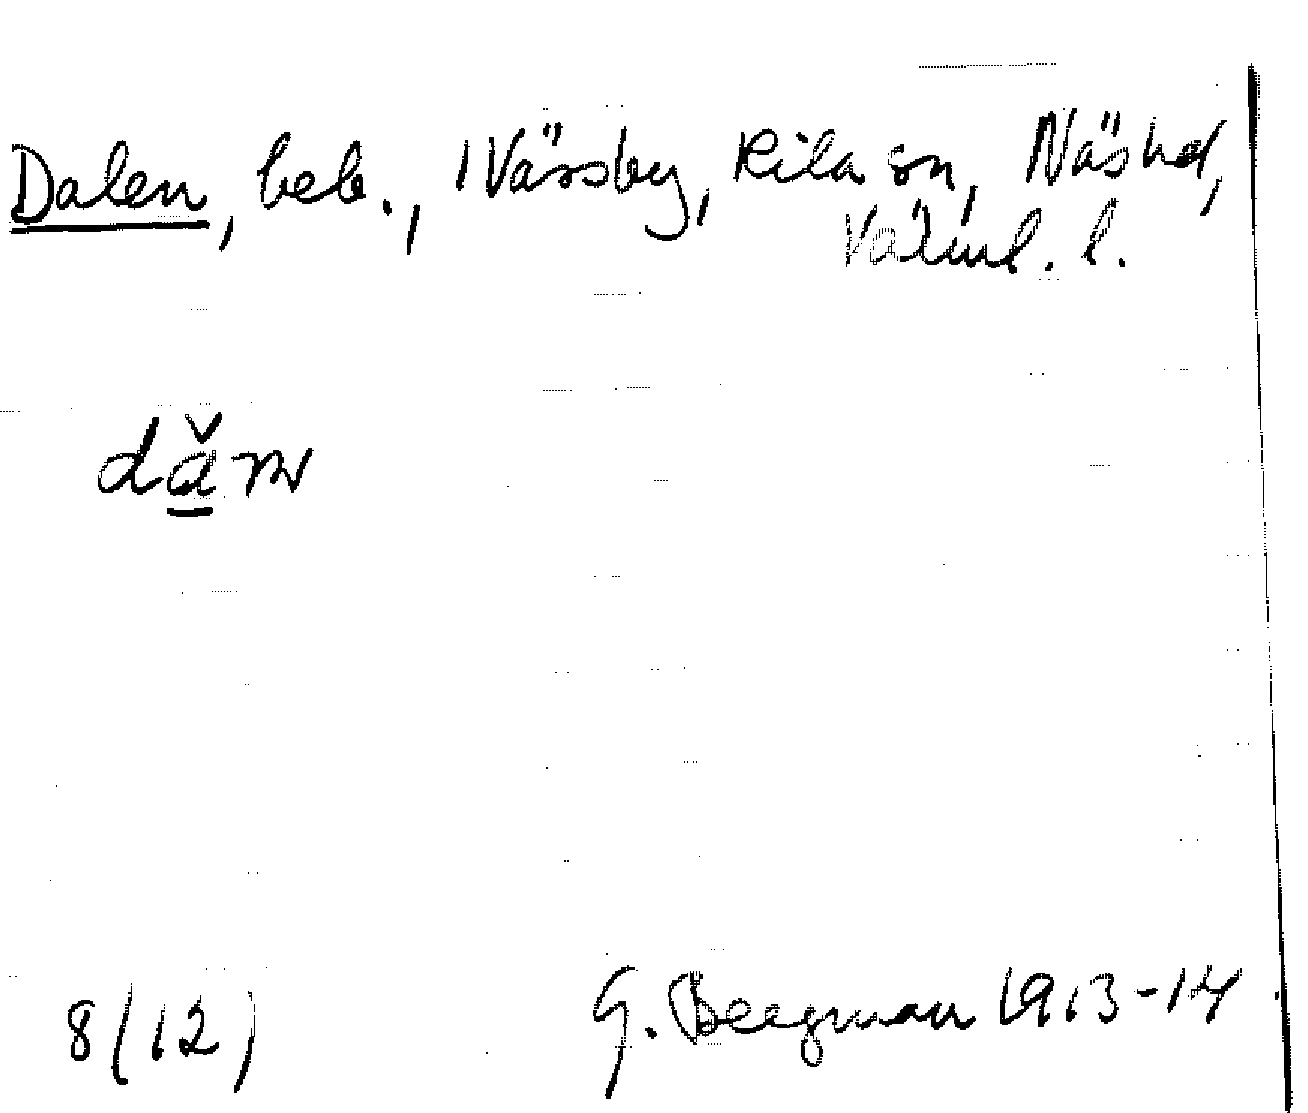 Dalen, beb., Värsby, Kila sn, Näshd,
Värml. l.
8 (12) G. Bergman 1913-14